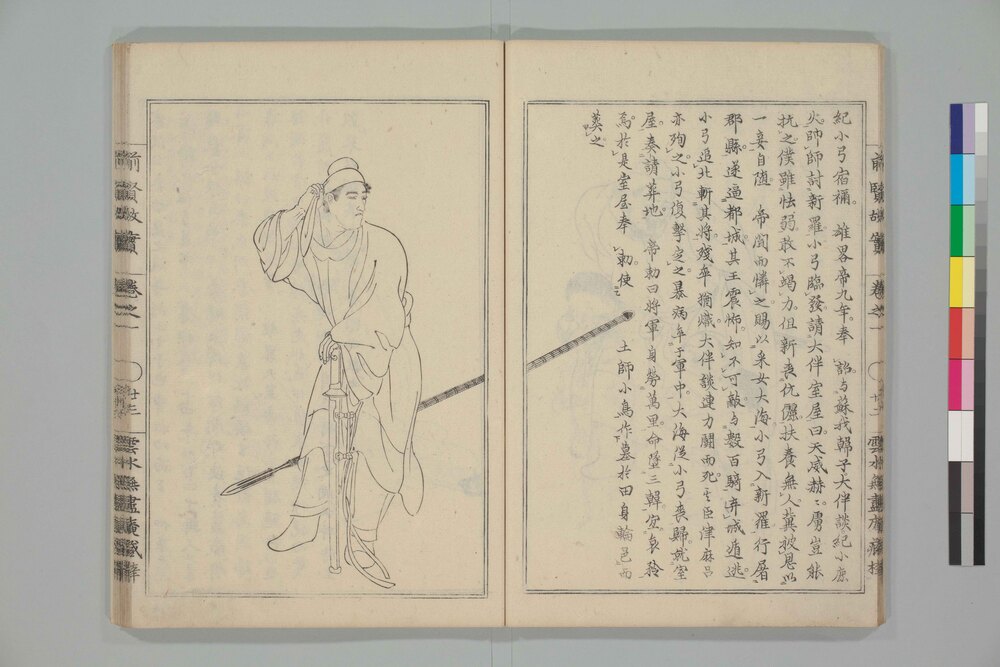 紀小弓宿禰。 雄畧帝九年。奉 詔与蘇我韓子大伴談紀小鹿
火師師討新羅小弓臨發請大伴室屋曰天威赫々虜豈能
抗之僕雖怯弱敢不竭力但新喪伉儷扶養無人冀被恩以
一妾自随 帝聞而憐之賜以采女大海小弓入新羅行屠
郡縣遂逼都城其王震怖知不可敵与數百騎弃城遁逃
小弓追北斬其將殘卒猶熾大伴談連力鬪而死其臣津麻呂
亦殉之小弓復擊定之暴病卒于軍中大海從小弓喪歸就室
屋奏請葬地 帝勅曰將軍身勞萬里命墜三韓宜哀矜
焉於是室屋奉 勅使 土師小鳥作墓於田身輪邑而
葬之
前賢故實 卷之一
廿二
雲水無盡庵藏梓
前賢故實 卷之一
廿三
雲水無盡庵藏梓